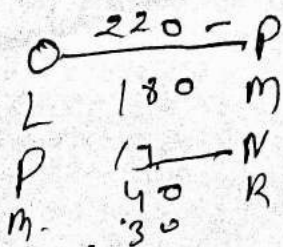 220 - P
O
L 180 M
P 17 N
40 R
M. 30